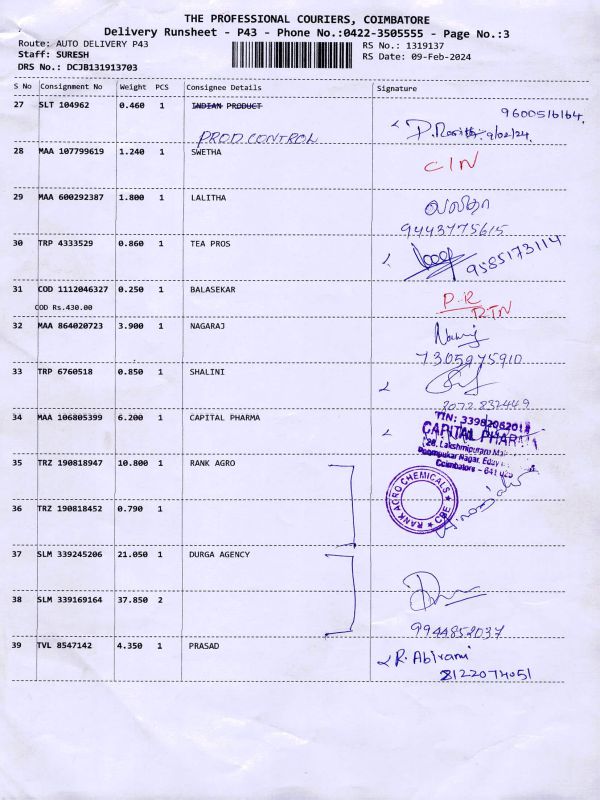 THE PROFESSIONAL COURIERS, COIMBATORE
Delivery Runsheet - P43 - Phone No.:0422-3505555 - Page No.:3
Route: AUTO DELIVERY P43 RS No.: 1319137
Staff: SURESH RS Date: 09-Feb-2024
DRS No.: DCJB131913703
S No Consignment No Weight PCS Consignee Details Signature
27 SLT 104962 0.460 1 INDIAN PRODUCT 9600516164
PROD.CONTROL 9/02/24
28 MAA 107799619 1.240 1 SWETHA CIN
29 MAA 600292387 1.800 1 LALITHA லலிதா
9443775615
30 TRP 4333529 0.860 1 TEA PROS 9585173114
31 COD 1112046327 0.250 1 BALASEKAR P.R
COD Rs.430.00 RTN
32 MAA 864020723 3.900 1 NAGARAJ
7305975910
33 TRP 6760518 0.850 1 SHALINI
34 MAA 106805399 6.200 1 CAPITAL PHARMA TIN: 33982062018
CAPITAL PHARMA
Coimbatore - 641
35 TRZ 190818947 10.800 1 RANK AGRO RANK AGRO CHEMICALS CBE
36 TRZ 190818452 0.790 1
37 SLM 339245206 21.050 1 DURGA AGENCY
38 SLM 339169164 37.850 2
9944852037
39 TVL 8547142 4.350 1 PRASAD R. Abirami
8122074051